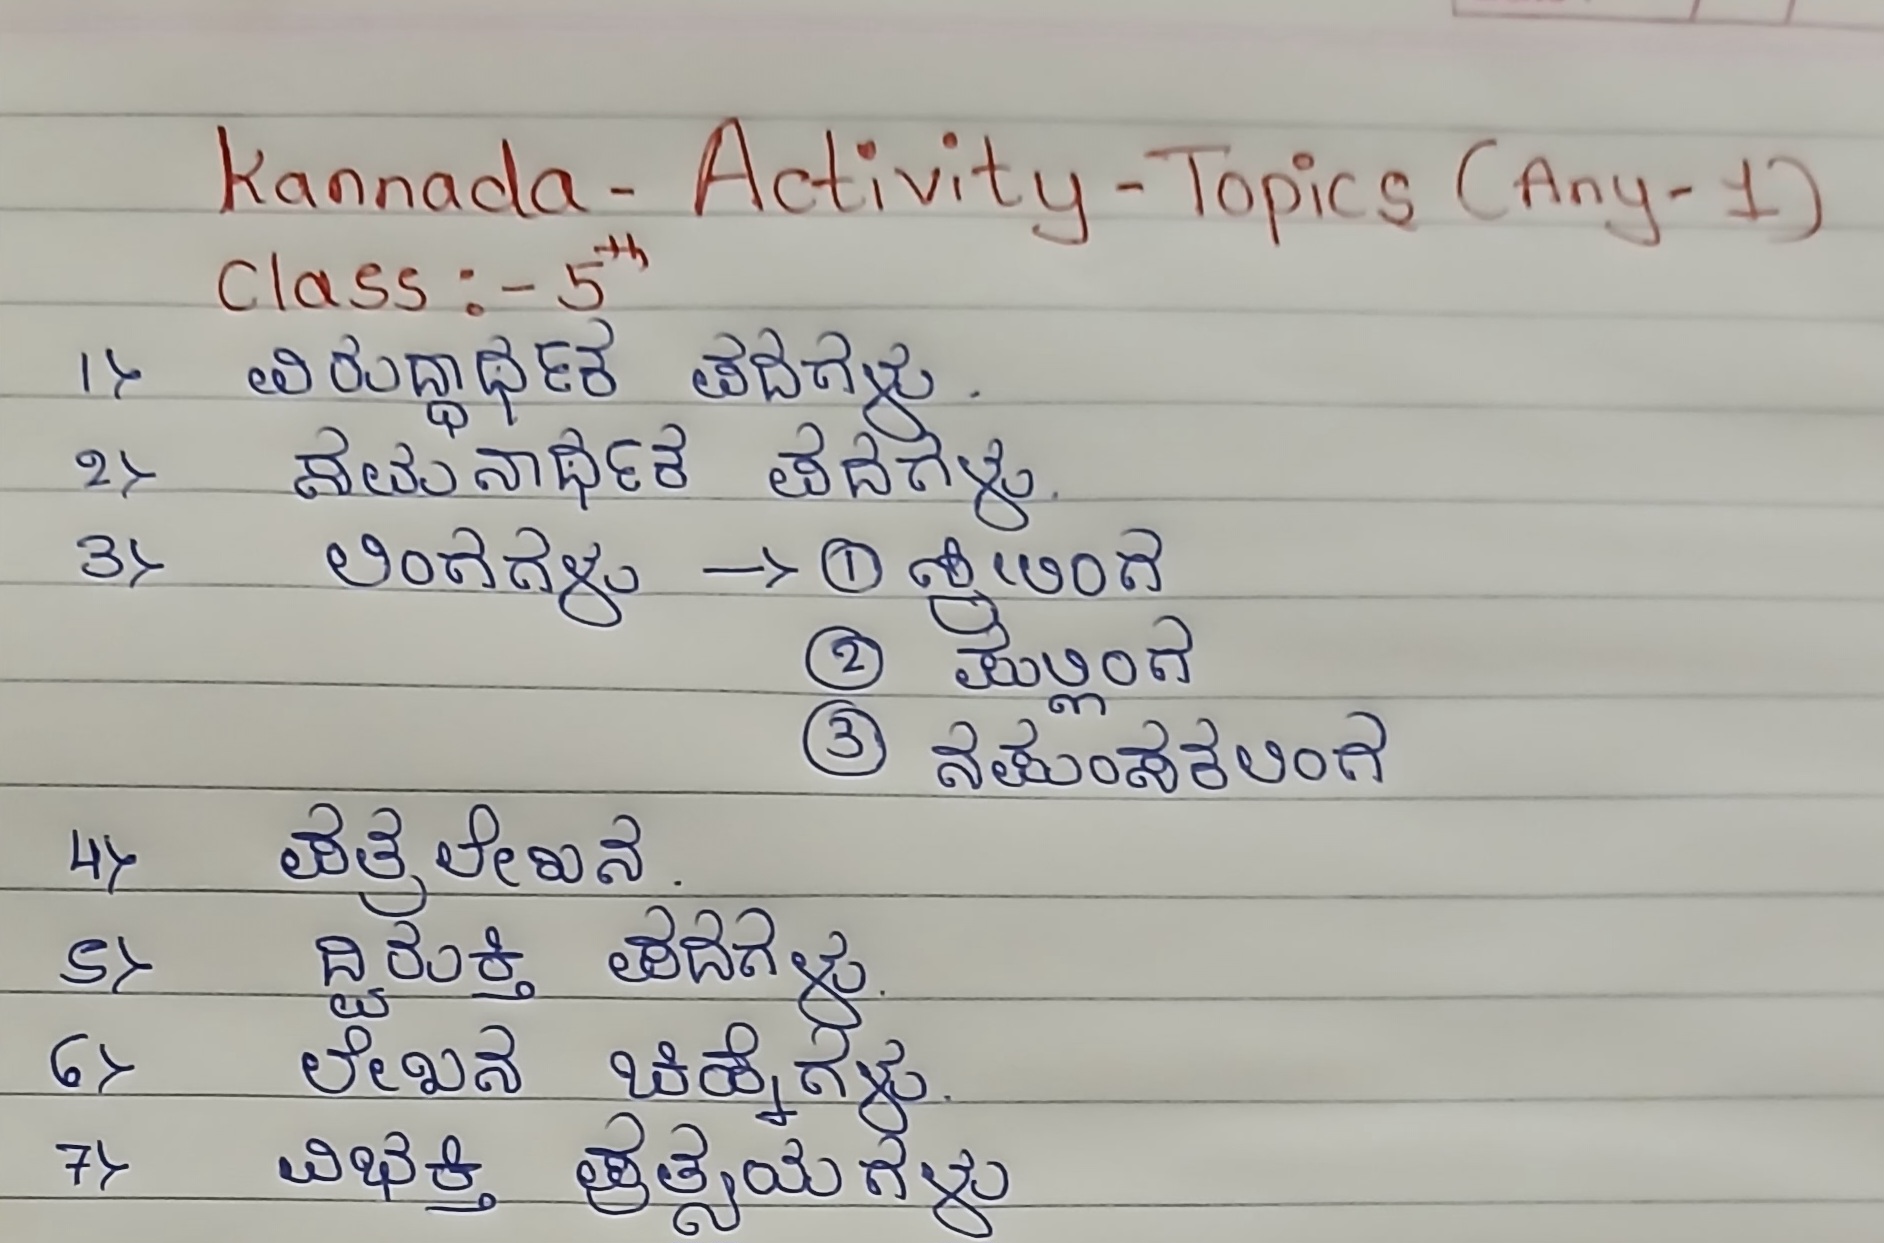 Kannada - Activity - Topics (Any - 1)
Class :- 5th
1> ವಿರುದ್ಧಾರ್ಥಕ ಪದಗಳು.
2> ಸಮನಾರ್ಥಕ ಪದಗಳು.
3> ಲಿಂಗಗಳು → ① ಸ್ತ್ರೀಲಿಂಗ
② ಪುಲ್ಲಿಂಗ
③ ನಪುಂಸಕಲಿಂಗ
4> ಪತ್ರ ಲೇಖನ.
5> ದ್ವಿರುಕ್ತಿ ಪದಗಳು.
6> ಲೇಖನ ಚಿಹ್ನೆಗಳು.
7> ವಿಭಕ್ತಿ ಪ್ರತ್ಯಯಗಳು